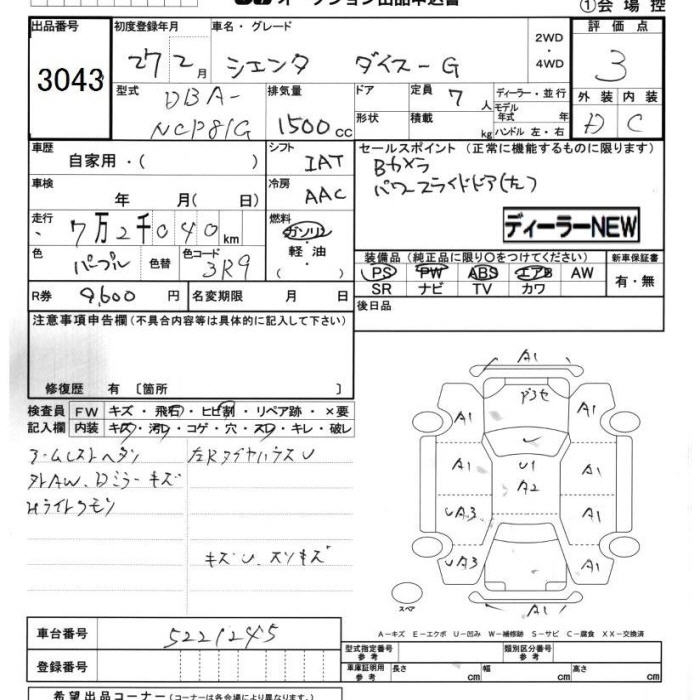 オークション出品申込書
①会場控
出品番号 3043
初度登録年月 27 2月
車名・グレード シエンタ ダイス-G
2WD・4WD
評価点 3
外装 D 内装 C
型式 DBA-NCP81G
排気量 1500cc
ドア
形状
定員 7人
積載 kg
ディーラー・並行
モデル年式 年
ハンドル 左・右
車歴 自家用・( )
シフト IAT
セールスポイント (正常に機能するものに限ります)
Bカメラ
パワースライドドア(左)
車検 年 月(日)
冷房 AAC
ディーラーNEW
走行 7万2千040km
燃料 ガソリン・軽油
色 パープル 色替 色コード 3R9
装備品 (純正品に限り○をつけてください)
PS PW ABS エアB AW
SR ナビ TV カワ
新車保証書 有・無
R券 9,600円 名変期限 月 日
後日品
注意事項申告欄 (不具合内容等は具体的に記入して下さい)
修復歴 有 〔箇所 〕
検査員記入欄
FW キズ・飛石・ヒビ割・リペア跡・×要
内装 キズ・汚レ・コゲ・穴・スレ・キレ・破レ
アームレストヘタリ
外AW、Dミラーキズ
キズU、スリキズ
A1
A1
A1
A1
U1
A2
A1
UA3
A1
UA3
A1
A1
スペア
A-キズ E-エクボ U-凹み W-補修跡 S-サビ C-腐食 XX-交換済
車台番号 5221245
登録番号
型式指定番号 参考
類別区分番号 参考
車庫証明用 参考 長さ cm 幅 cm 高さ cm
希望出品コーナー (コーナーは各会場により異なります。)